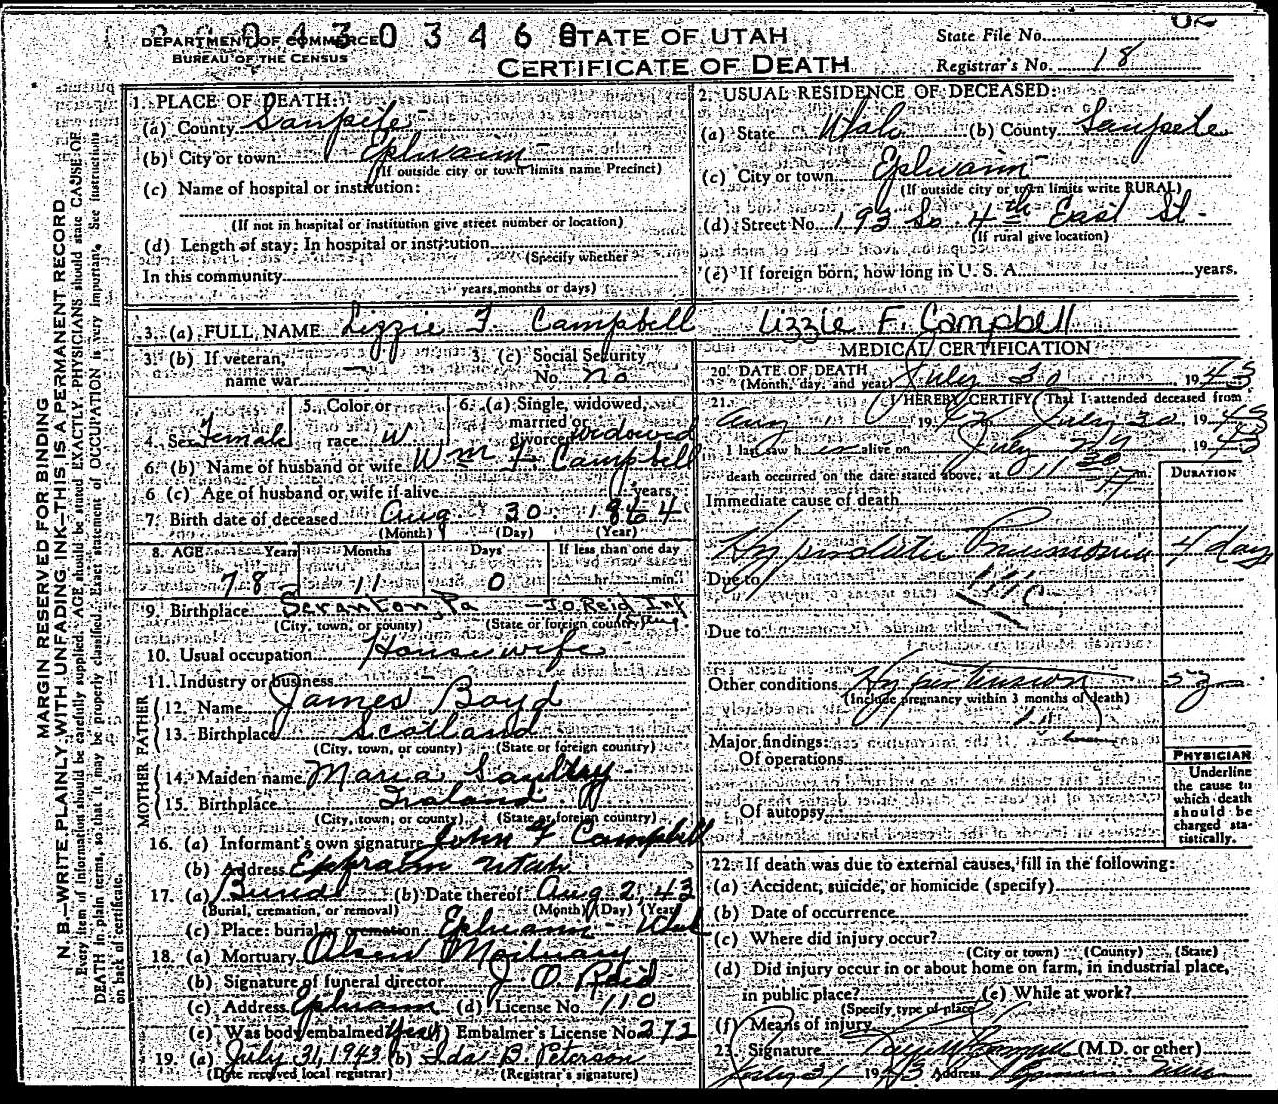 DEPARTMENT OF COMMERCE
BUREAU OF THE CENSUS
0430346
STATE OF UTAH
CERTIFICATE OF DEATH
State File No.
Registrar's No. 18
MARGIN RESERVED FOR BINDING
N. B.—WRITE PLAINLY WITH UNFADING INK—THIS IS A PERMANENT RECORD
Every item of information should be carefully supplied. AGE should be stated EXACTLY. PHYSICIANS should state CAUSE OF
DEATH in plain terms, so that it may be properly classified. Exact statement of OCCUPATION is very important. See instructions
on back of certificate.
1. PLACE OF DEATH:
(a) County Sanpete
(b) City or town Ephraim
(If outside city or town limits name Precinct)
(c) Name of hospital or institution:
(If not in hospital or institution give street number or location)
(d) Length of stay: In hospital or institution
(Specify whether
In this community
years, months or days)
2. USUAL RESIDENCE OF DECEASED:
(a) State Utah (b) County Sanpete
(c) City or town Ephraim
(If outside city or town limits write RURAL)
(d) Street No. 193 So 4th East St.
(If rural give location)
(e) If foreign born, how long in U. S. A. years.
3. (a) FULL NAME Lizzie F. Campbell Lizzie F. Campbell
3. (b) If veteran,
name war
3. (c) Social Security
No. no
4. Sex Female
5. Color or
race W
6. (a) Single, widowed,
married or
divorced widowed
6. (b) Name of husband or wife Wm F. Campbell
6 (c) Age of husband or wife if alive years
7. Birth date of deceased Aug 30 1864
(Month) (Day) (Year)
8. AGE Years Months Days If less than one day
78 11 0 hr. min.
9. Birthplace Scranton Pa — J.O. Reid Inf
(City, town, or county) (State or foreign country)
10. Usual occupation Housewife
11. Industry or business
FATHER
12. Name James Boyd
13. Birthplace Scotland
(City, town, or county) (State or foreign country)
MOTHER
14. Maiden name Maria
15. Birthplace Ireland
(City, town, or county) (State or foreign country)
16. (a) Informant's own signature John F Campbell
(b) Address Ephraim Utah
17. (a) Burial (b) Date thereof Aug 2, 43
(Burial, cremation, or removal) (Month) (Day) (Year)
(c) Place: burial or cremation Ephraim - Utah
18. (a) Mortuary Olsen Mortuary
(b) Signature of funeral director J. O. Reid
(c) Address Ephraim (d) License No. 110
(e) Was body embalmed Yes () Embalmer's License No. 272
19. (a) July 31, 1943 (b) Ida B. Peterson
(Date received local registrar) (Registrar's signature)
MEDICAL CERTIFICATION
20. DATE OF DEATH
(Month, day, and year) July 30, 1943
21. I HEREBY CERTIFY, That I attended deceased from
Aug 1 1942 July 30, 1943
I last saw her alive on July 29, 1943
death occurred on the date stated above, at 11 m.
DURATION
Immediate cause of death
Hypostatic Pneumonia 4 days
Due to
Due to
Other conditions Hypertension
(Include pregnancy within 3 months of death)
Major findings:
Of operations
Of autopsy
PHYSICIAN
Underline
the cause to
which death
should be
charged sta-
tistically.
22. If death was due to external causes, fill in the following:
(a) Accident, suicide, or homicide (specify)
(b) Date of occurrence
(c) Where did injury occur?
(City or town) (County) (State)
(d) Did injury occur in or about home on farm, in industrial place,
in public place? (e) While at work?
(Specify type of place)
(f) Means of injury
23. Signature (M.D. or other)
July 31 1943 Address